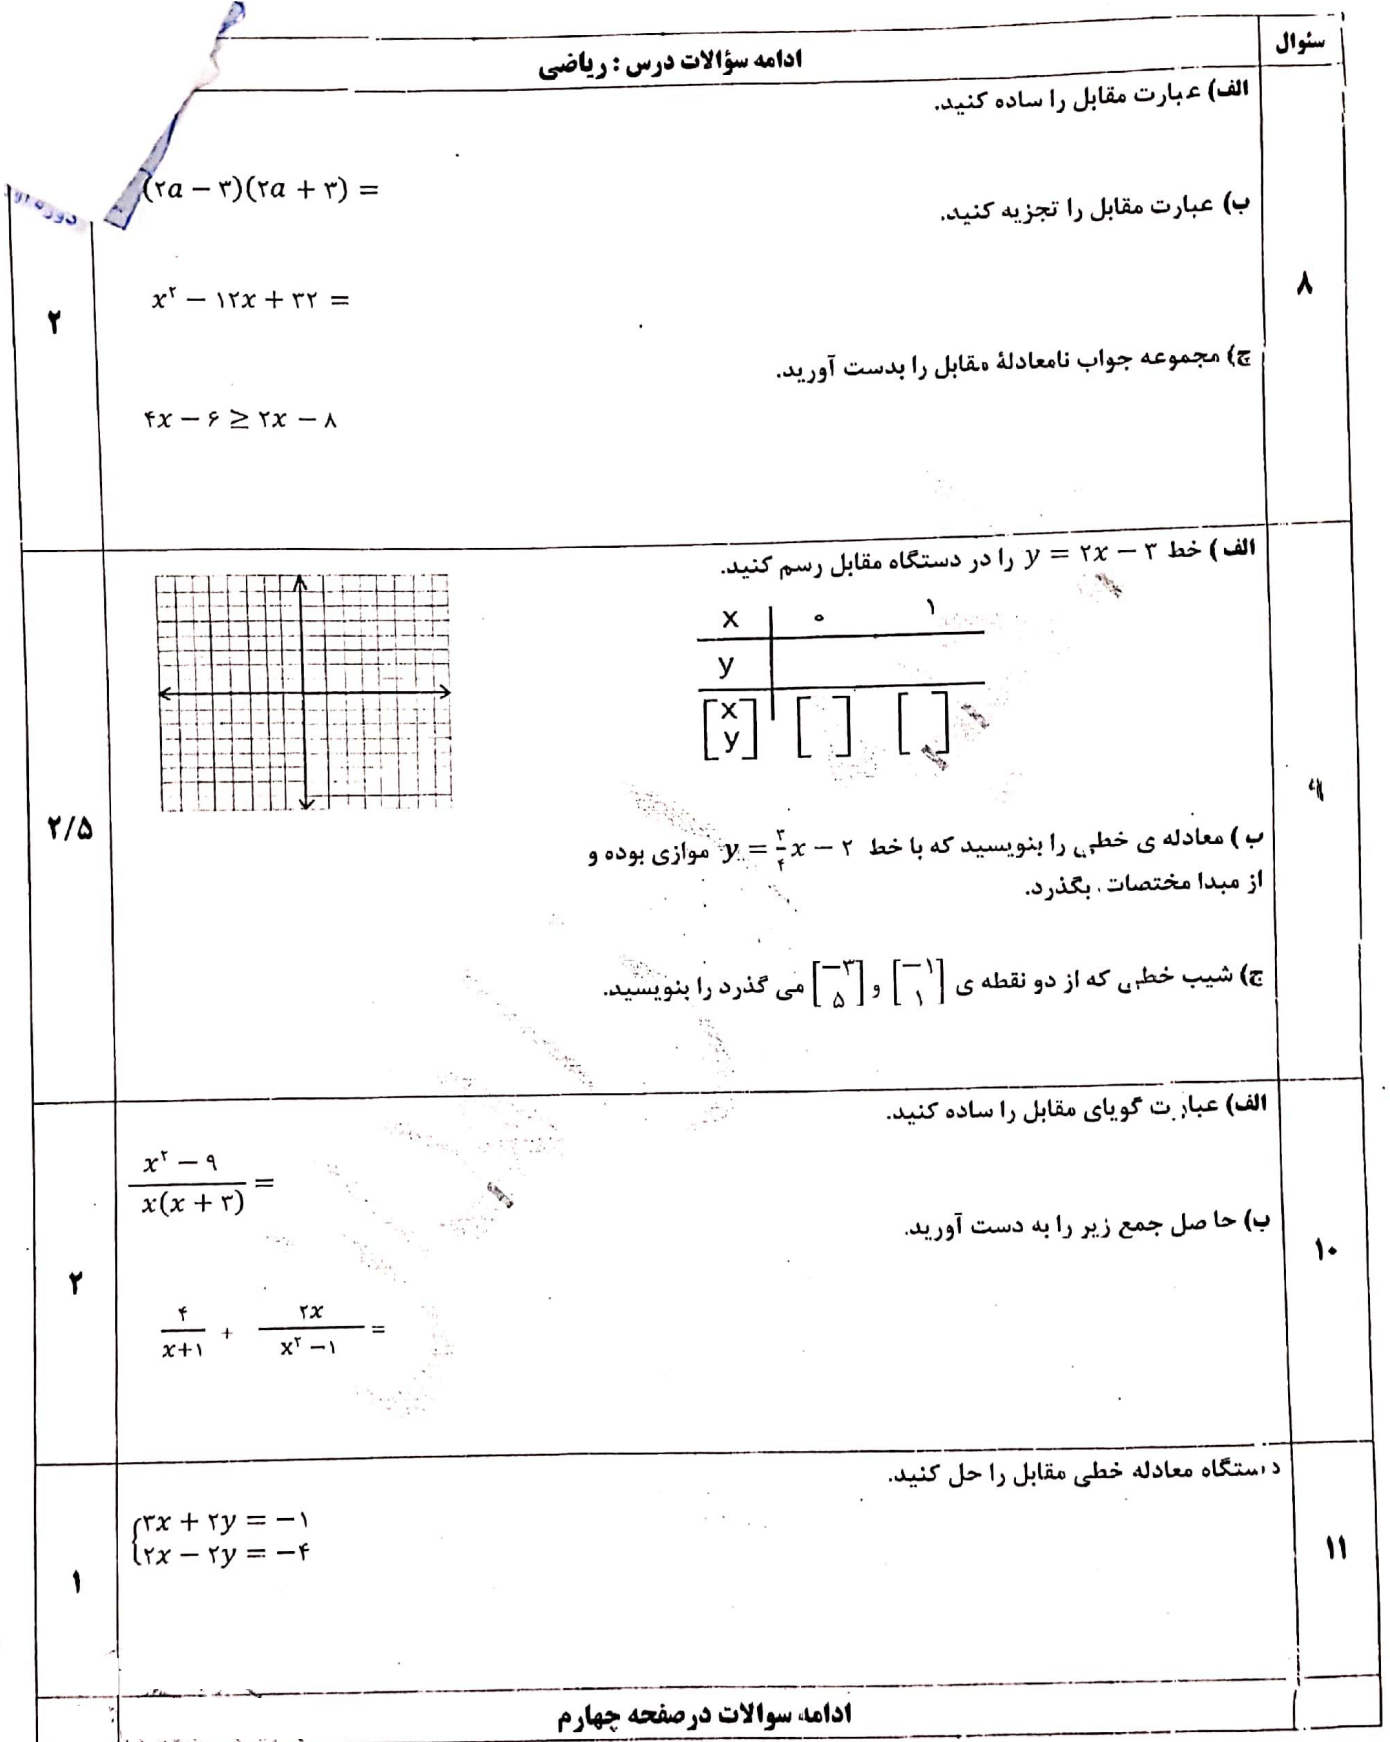 سئوال
ادامه سؤالات درس : ریاضی
الف) عبارت مقابل را ساده کنید.
(۲a − ۳)(۲a + ۳) =
ب) عبارت مقابل را تجزیه کنید.
x² − ۱۲x + ۳۲ =
ج) مجموعه جواب نامعادلهٔ مقابل را بدست آورید.
۴x − ۶ ≥ ۲x − ۸
۸
۲
الف) خط y = ۲x − ۳ را در دستگاه مقابل رسم کنید.
x ۰ ۱
y
[x y] [ ] [ ]
ب) معادله ی خطی را بنویسید که با خط y = ۳/۴ x − ۲ موازی بوده و
از مبدا مختصات بگذرد.
ج) شیب خطی که از دو نقطه ی [−۱ ۱] و [−۳ ۵] می گذرد را بنویسید.
۹
۲/۵
الف) عبارت گویای مقابل را ساده کنید.
(x² − ۹)/(x(x + ۳)) =
ب) حاصل جمع زیر را به دست آورید.
۴/(x+۱) + ۲x/(x² −۱) =
۱۰
۲
دستگاه معادله خطی مقابل را حل کنید.
۳x + ۲y = −۱
۲x − ۲y = −۴
۱۱
۱
ادامه سوالات درصفحه چهارم